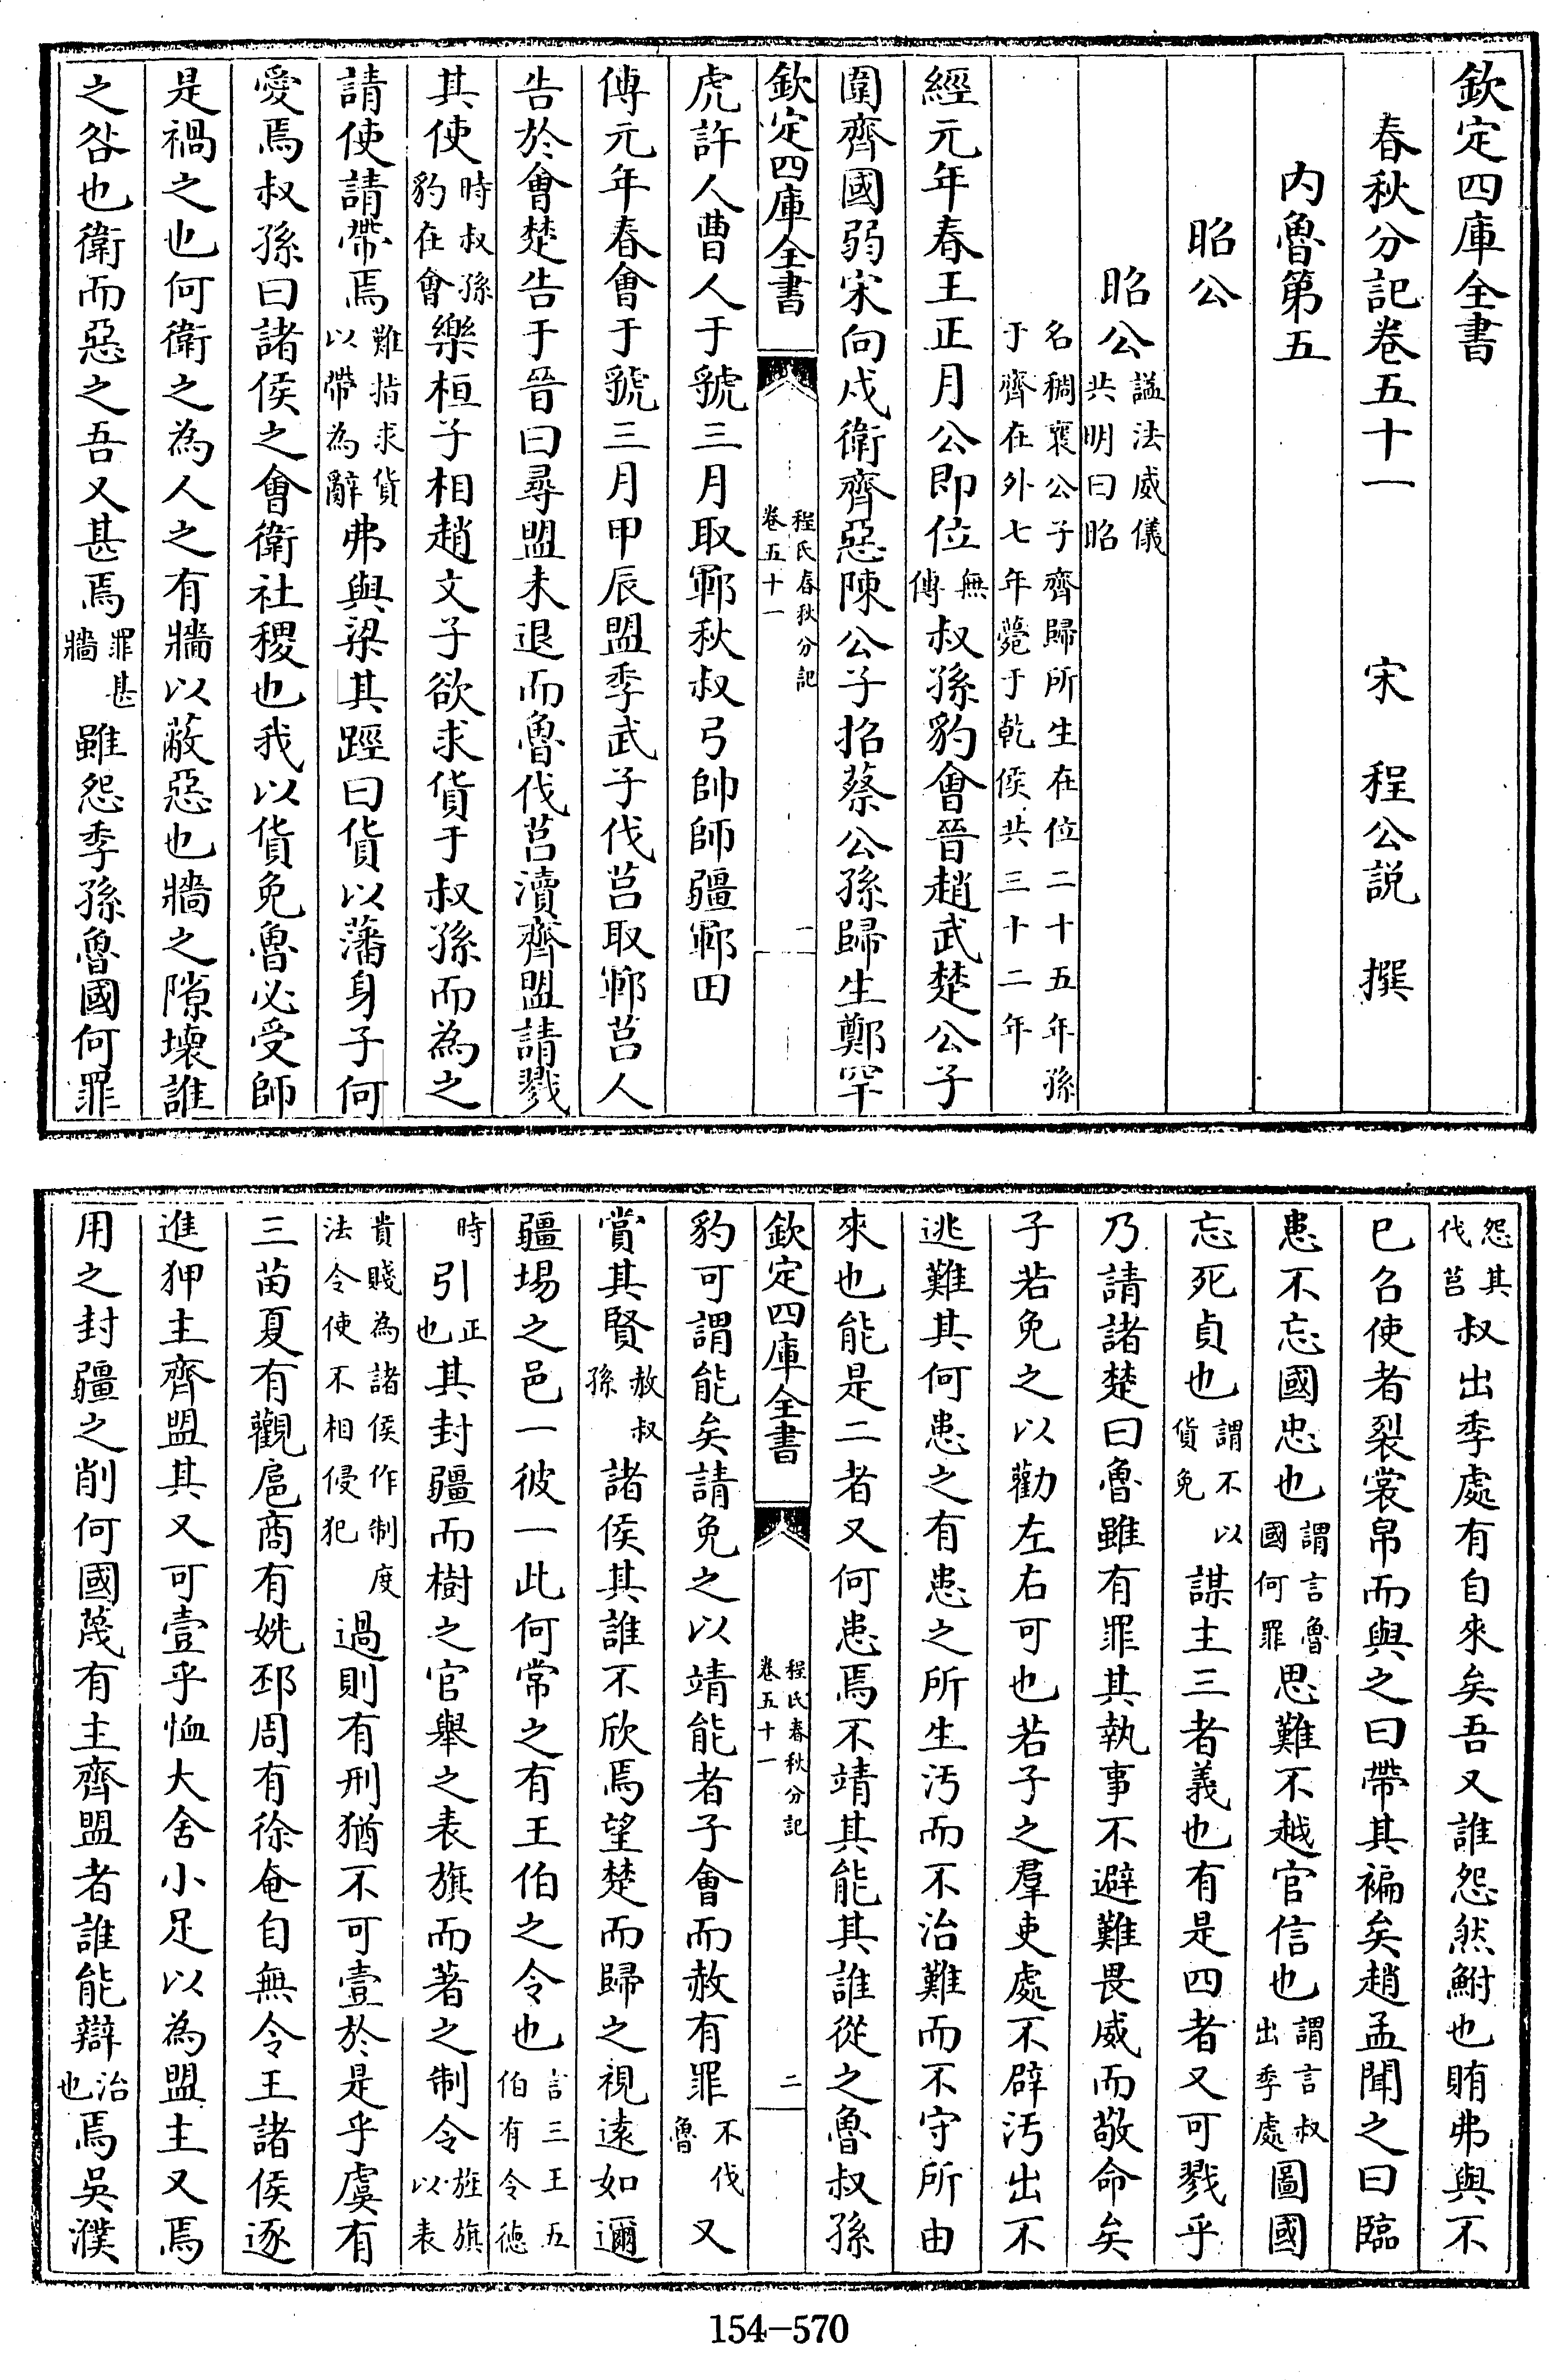 欽定四庫全書
春秋分記卷五十一　宋　程公説　撰
内魯第五
昭公
昭公謚法威儀共明曰昭
名稠襄公子齊歸所生在位二十五年孫于齊在外七年薨于乾侯共三十二年
經元年春王正月公即位無傳叔孫豹會晉趙武楚公子
圍齊國弱宋向戌衛齊惡陳公子招蔡公孫歸生鄭罕
欽定四庫全書　程氏春秋分記卷五十一　一
虎許人曹人于虢三月取鄆秋叔弓帥師疆鄆田
傳元年春會于虢三月甲辰盟季武子伐莒取鄆莒人
告於會楚告于晉曰尋盟未退而魯伐莒瀆齊盟請戮
其使時叔孫豹在會樂桓子相趙文子欲求貨于叔孫而為之
請使請帶焉難指求貨以帶為辭弗與梁其踁曰貨以藩身子何
愛焉叔孫曰諸侯之會衛社稷也我以貨免魯必受師
是禍之也何衛之為人之有牆以蔽惡也牆之隙壞誰
之咎也衛而惡之吾又甚焉罪甚牆雖怨季孫魯國何罪
怨其伐莒叔出季處有自來矣吾又誰怨然鮒也賄弗與不
已召使者裂裳帛而與之曰帶其褊矣趙孟聞之曰臨
患不忘國忠也謂言魯國何罪思難不越官信也謂言叔出季處圖國
忘死貞也謂不以貨免謀主三者義也有是四者又可戮乎
乃請諸楚曰魯雖有罪其執事不避難畏威而敬命矣
子若免之以勸左右可也若子之羣吏處不辟污出不
逃難其何患之有患之所生汚而不治難而不守所由
來也能是二者又何患焉不靖其能其誰從之魯叔孫
欽定四庫全書　程氏春秋分記卷五十一　二
豹可謂能矣請免之以靖能者子會而赦有罪不伐魯又
賞其賢赦叔孫諸侯其誰不欣焉望楚而歸之視遠如邇
疆場之邑一彼一此何常之有王伯之令也言三王五伯有令德
時引正也其封疆而樹之官舉之表旗而著之制令旌旗以表
貴賤為諸侯作制度法令使不相侵犯過則有刑猶不可壹於是乎虞有
三苗夏有觀扈商有姺邳周有徐奄自無令王諸侯逐
進狎主齊盟其又可壹乎恤大舍小足以為盟主又焉
用之封疆之削何國蔑有主齊盟者誰能辯治也焉吳濮
154-570